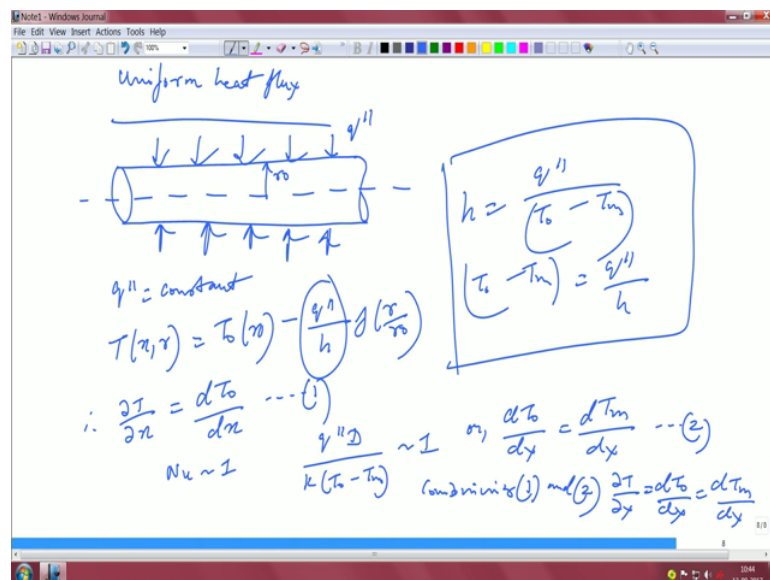 Note1 - Windows Journal
File Edit View Insert Actions Tools Help
100%
Uniform heat flux
q"
r0
q" = constant
T(x,r) = T0(x) - q"/h f(r/r0)
∴ ∂T/∂x = dT0/dx ---(1)
Nu ~ 1 q"D/k(T0 - Tm) ~ 1 or, dT0/dx = dTm/dx ---(2)
Combining (1) and (2) ∂T/∂x = dT0/dx = dTm/dx
h = q"/(T0 - Tm)
(T0 - Tm) = q"/h
8
10:44